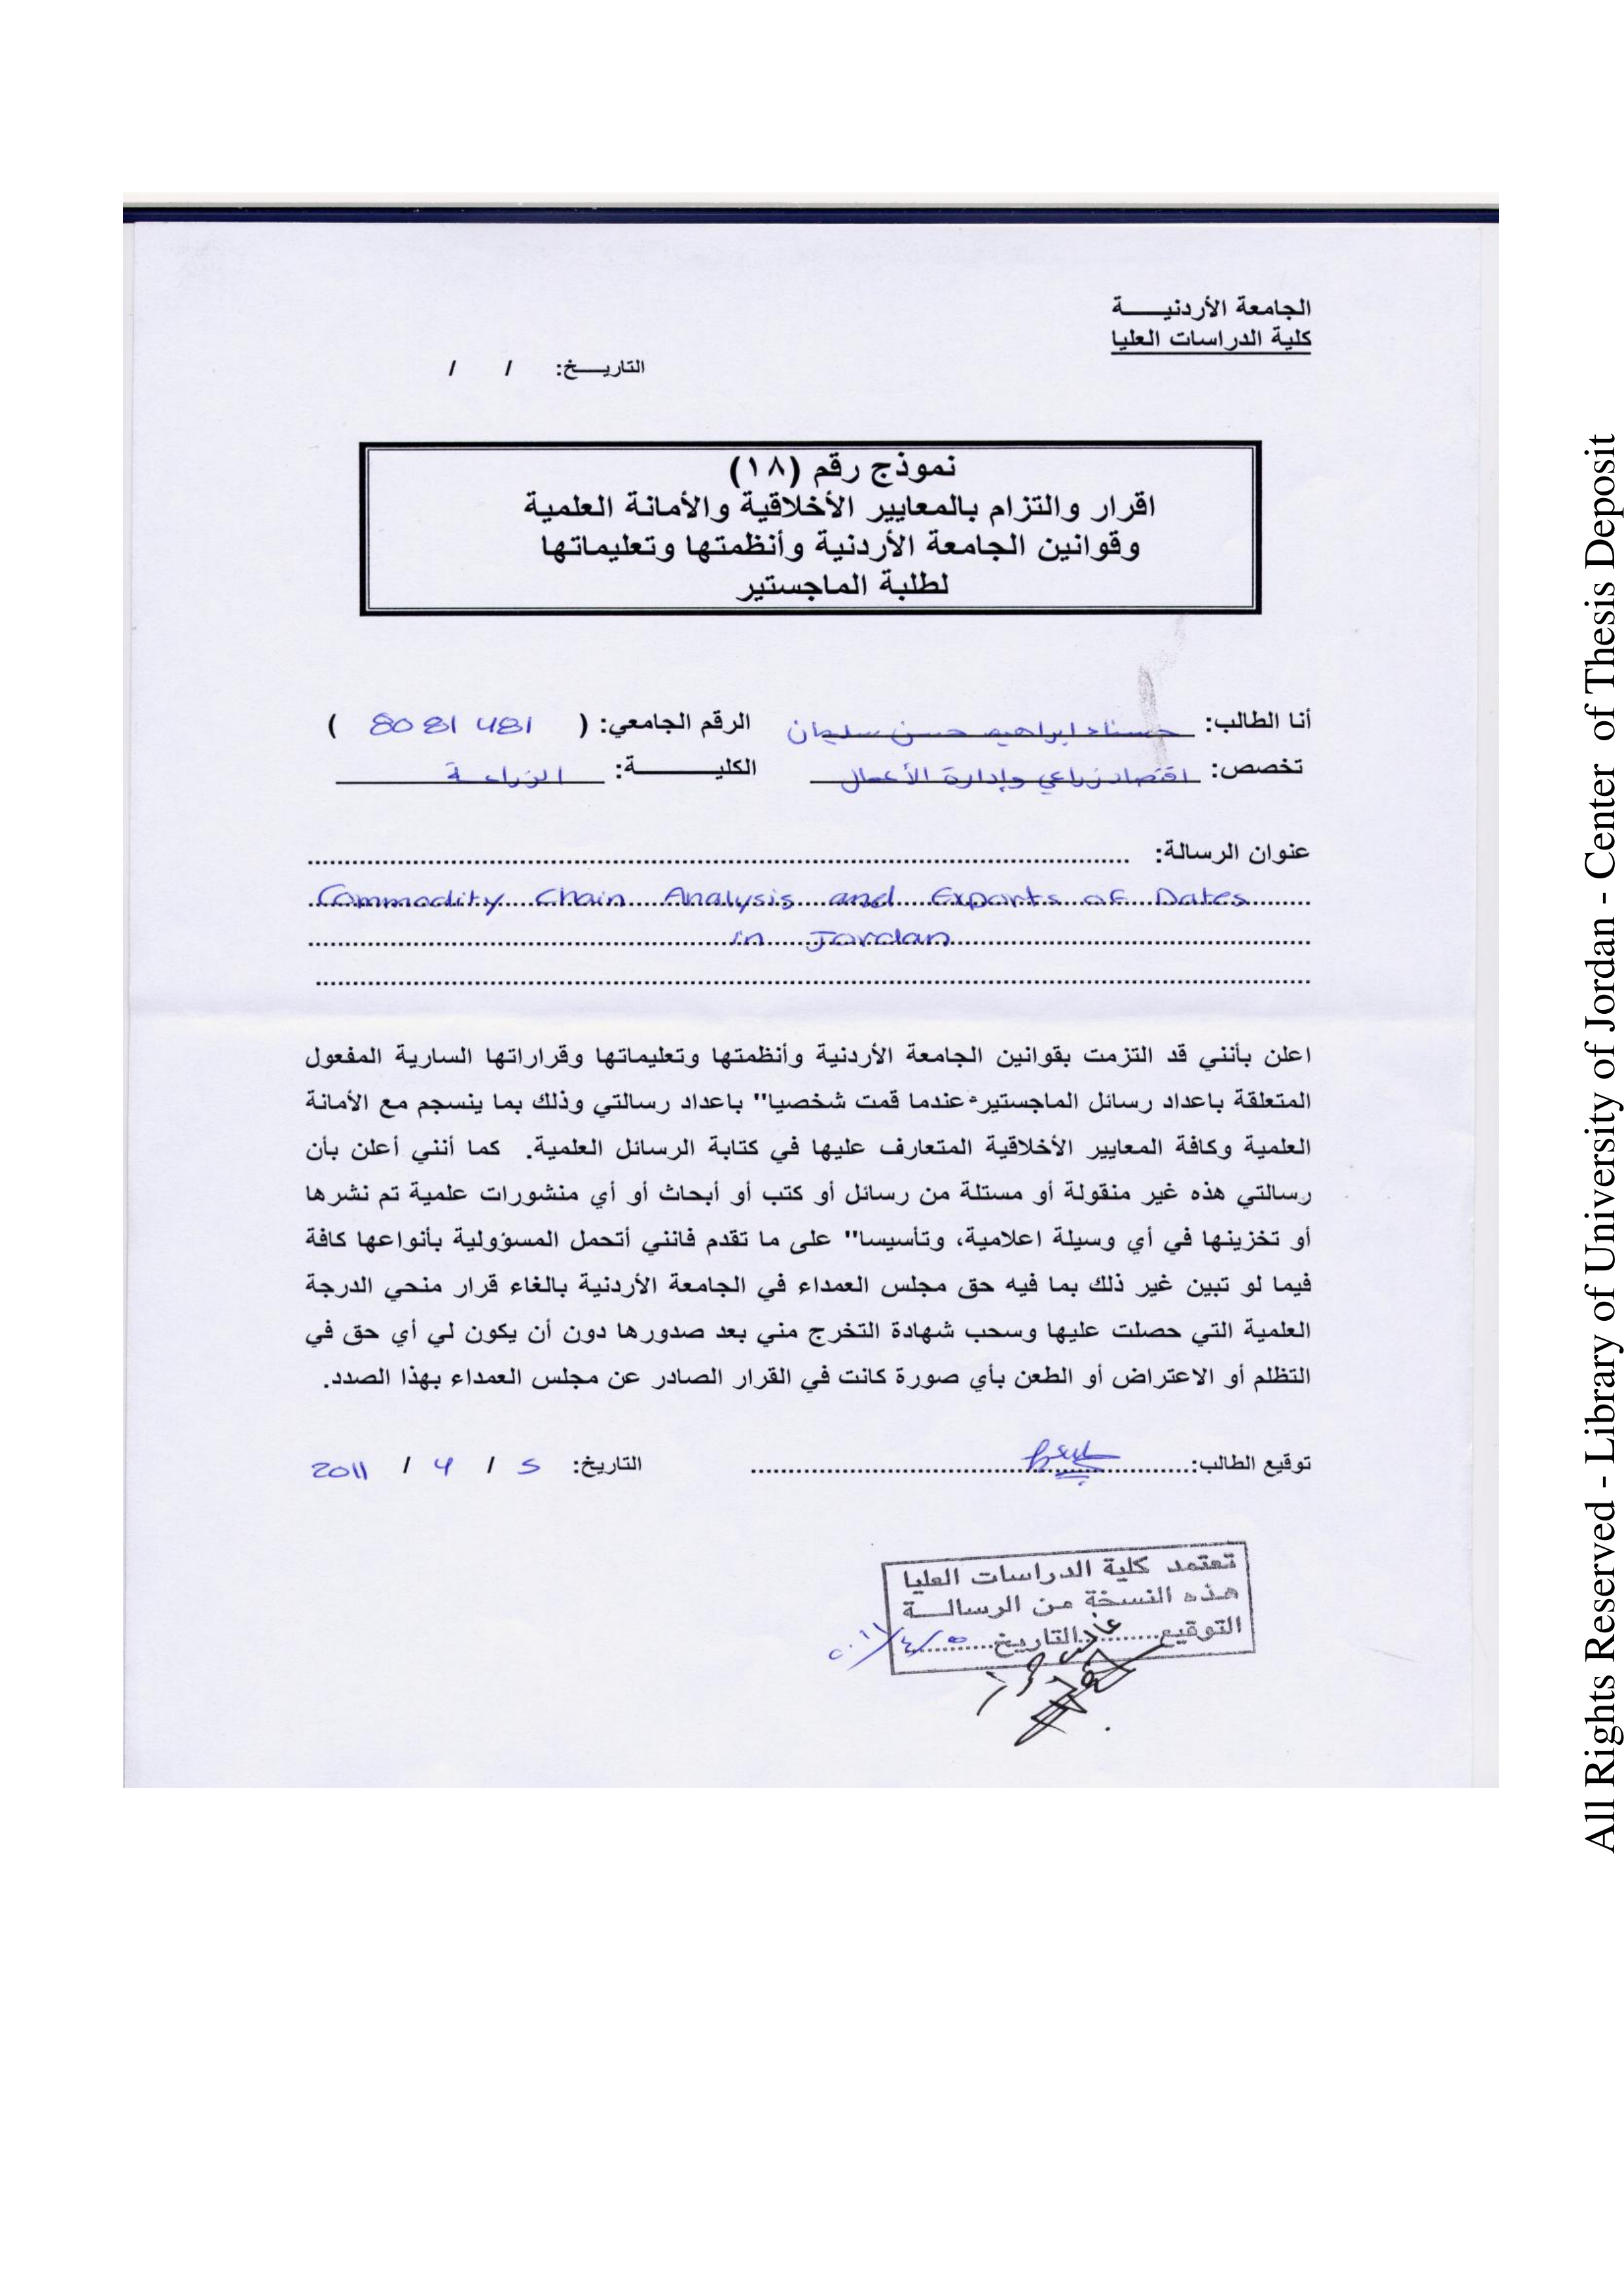 الجامعة الأردنيـــــة
كلية الدراسات العليا
التاريـــخ: / /
نموذج رقم (١٨)
اقرار والتزام بالمعايير الأخلاقية والأمانة العلمية
وقوانين الجامعة الأردنية وأنظمتها وتعليماتها
لطلبة الماجستير
أنا الطالب: حسناء ابراهيم حسن سليمان الرقم الجامعي: ( 8081481 )
تخصص: اقتصاد زراعي وإدارة الأعمال الكليـــــــــة: الزراعة
عنوان الرسالة:
Commodity Chain Analysis and Exports of Dates
in Jordan
اعلن بأنني قد التزمت بقوانين الجامعة الأردنية وأنظمتها وتعليماتها وقراراتها السارية المفعول
المتعلقة باعداد رسائل الماجستير عندما قمت شخصيا" باعداد رسالتي وذلك بما ينسجم مع الأمانة
العلمية وكافة المعايير الأخلاقية المتعارف عليها في كتابة الرسائل العلمية. كما أنني أعلن بأن
رسالتي هذه غير منقولة أو مستلة من رسائل أو كتب أو أبحاث أو أي منشورات علمية تم نشرها
أو تخزينها في أي وسيلة اعلامية، وتأسيسا" على ما تقدم فانني أتحمل المسؤولية بأنواعها كافة
فيما لو تبين غير ذلك بما فيه حق مجلس العمداء في الجامعة الأردنية بالغاء قرار منحي الدرجة
العلمية التي حصلت عليها وسحب شهادة التخرج مني بعد صدورها دون أن يكون لي أي حق في
التظلم أو الاعتراض أو الطعن بأي صورة كانت في القرار الصادر عن مجلس العمداء بهذا الصدد.
توقيع الطالب: التاريخ: 5 / 4 / 2011
تعتمد كلية الدراسات العليا
هذه النسخة من الرسالـــة
التوقيع..........التاريخ..........
All Rights Reserved - Library of University of Jordan - Center of Thesis Deposit